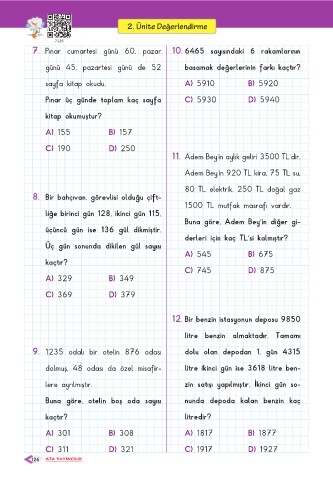 2. Ünite Değerlendirme
7. Pınar cumartesi günü 60, pazar
günü 45, pazartesi günü de 52
sayfa kitap okudu.
Pınar üç günde toplam kaç sayfa
kitap okumuştur?
A) 155 B) 157
C) 190 D) 250
8. Bir bahçıvan, görevlisi olduğu çift-
liğe birinci gün 128, ikinci gün 115,
üçüncü gün ise 136 gül dikmiştir.
Üç gün sonunda dikilen gül sayısı
kaçtır?
A) 329 B) 349
C) 369 D) 379
9. 1235 odalı bir otelin 876 odası
dolmuş, 48 odası da özel misafir-
lere ayrılmıştır.
Buna göre, otelin boş oda sayısı
kaçtır?
A) 301 B) 308
C) 311 D) 321
10. 6465 sayısındaki 6 rakamlarının
basamak değerlerinin farkı kaçtır?
A) 5910 B) 5920
C) 5930 D) 5940
11. Adem Bey'in aylık geliri 3500 TL'dir.
Adem Bey'in 920 TL kira, 75 TL su,
80 TL elektrik, 250 TL doğal gaz
1500 TL mutfak masrafı vardır.
Buna göre, Adem Bey'in diğer gi-
derleri için kaç TL'si kalmıştır?
A) 545 B) 675
C) 745 D) 875
12. Bir benzin istasyonun deposu 9850
litre benzin almaktadır. Tamamı
dolu olan depodan 1. gün 4315
litre ikinci gün ise 3618 litre ben-
zin satışı yapılmıştır. İkinci gün so-
nunda depoda kalan benzin kaç
litredir?
A) 1817 B) 1877
C) 1917 D) 1927
126 ATA YAYINCILIK